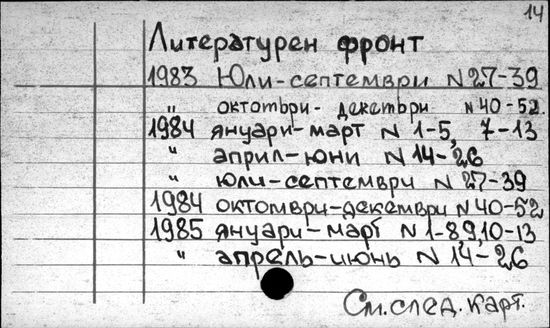 14
Литературен фронт
1983 Юли-септември N 27-39
" октомври- декември N 40-52.
1984 януари-март N 1-5, 7-13
" април-юни N 14-26
" юли-септември N 27-39
1984 октомври-декември N 40-52
1985 януари-март N 1-8,9,10-13
" апрель-июнь N 14-26
См.след.карт.